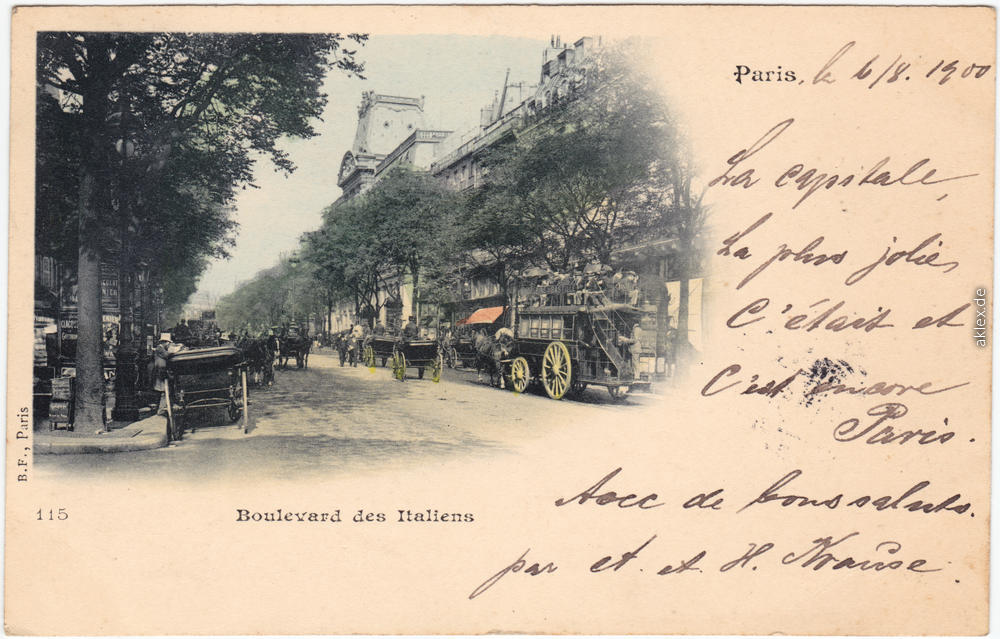 Paris, le 6/8. 1900
La capitale,
La plus jolie,
C'était et
C'est encore
Paris.
Avec de bons saluts.
par et. A. H. Krause.
115
Boulevard des Italiens
B.F., Paris
aklex.de